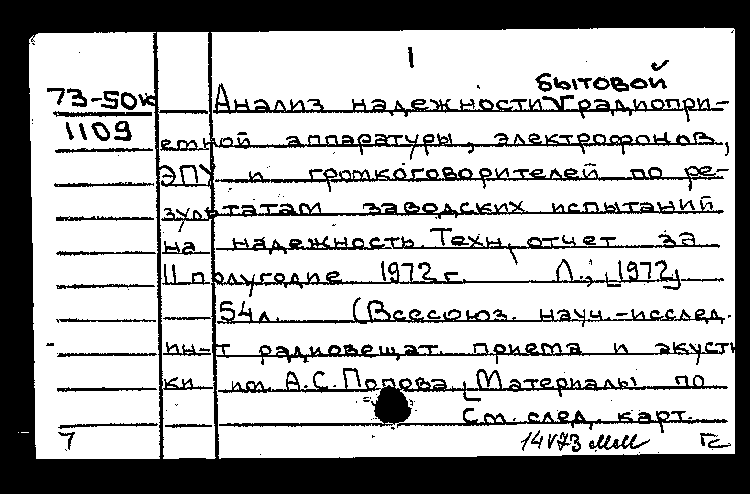 1
бытовой
73-50к Анализ надежности V радиопри-
1109 емной аппаратуры, электрофонов,
ЭПУ и громкоговорителей по ре-
зультатам заводских испытаний
на надежность. Техн. отчет за
II полугодие 1972 г. Л., [1972]
54 л. (Всесоюз. науч.-исслед.
ин-т радиовещат. приема и акусти
ки им. А.С. Попова. [Материалы по
См. след. карт.
7 14 V 73